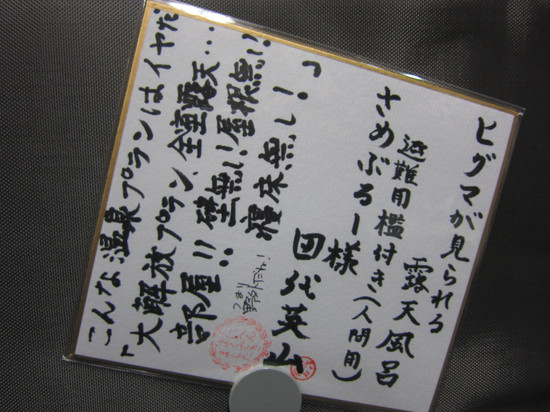 ヒグマが見られる
露天風呂
避難用檻付き(人間用)
さめぶるー様
こんな温泉プランはイヤだ
「大解放プラン、全室露天…
部屋!!壁無い!屋根無い!!
寝床無し!」
つまり野外だね!
田代英山